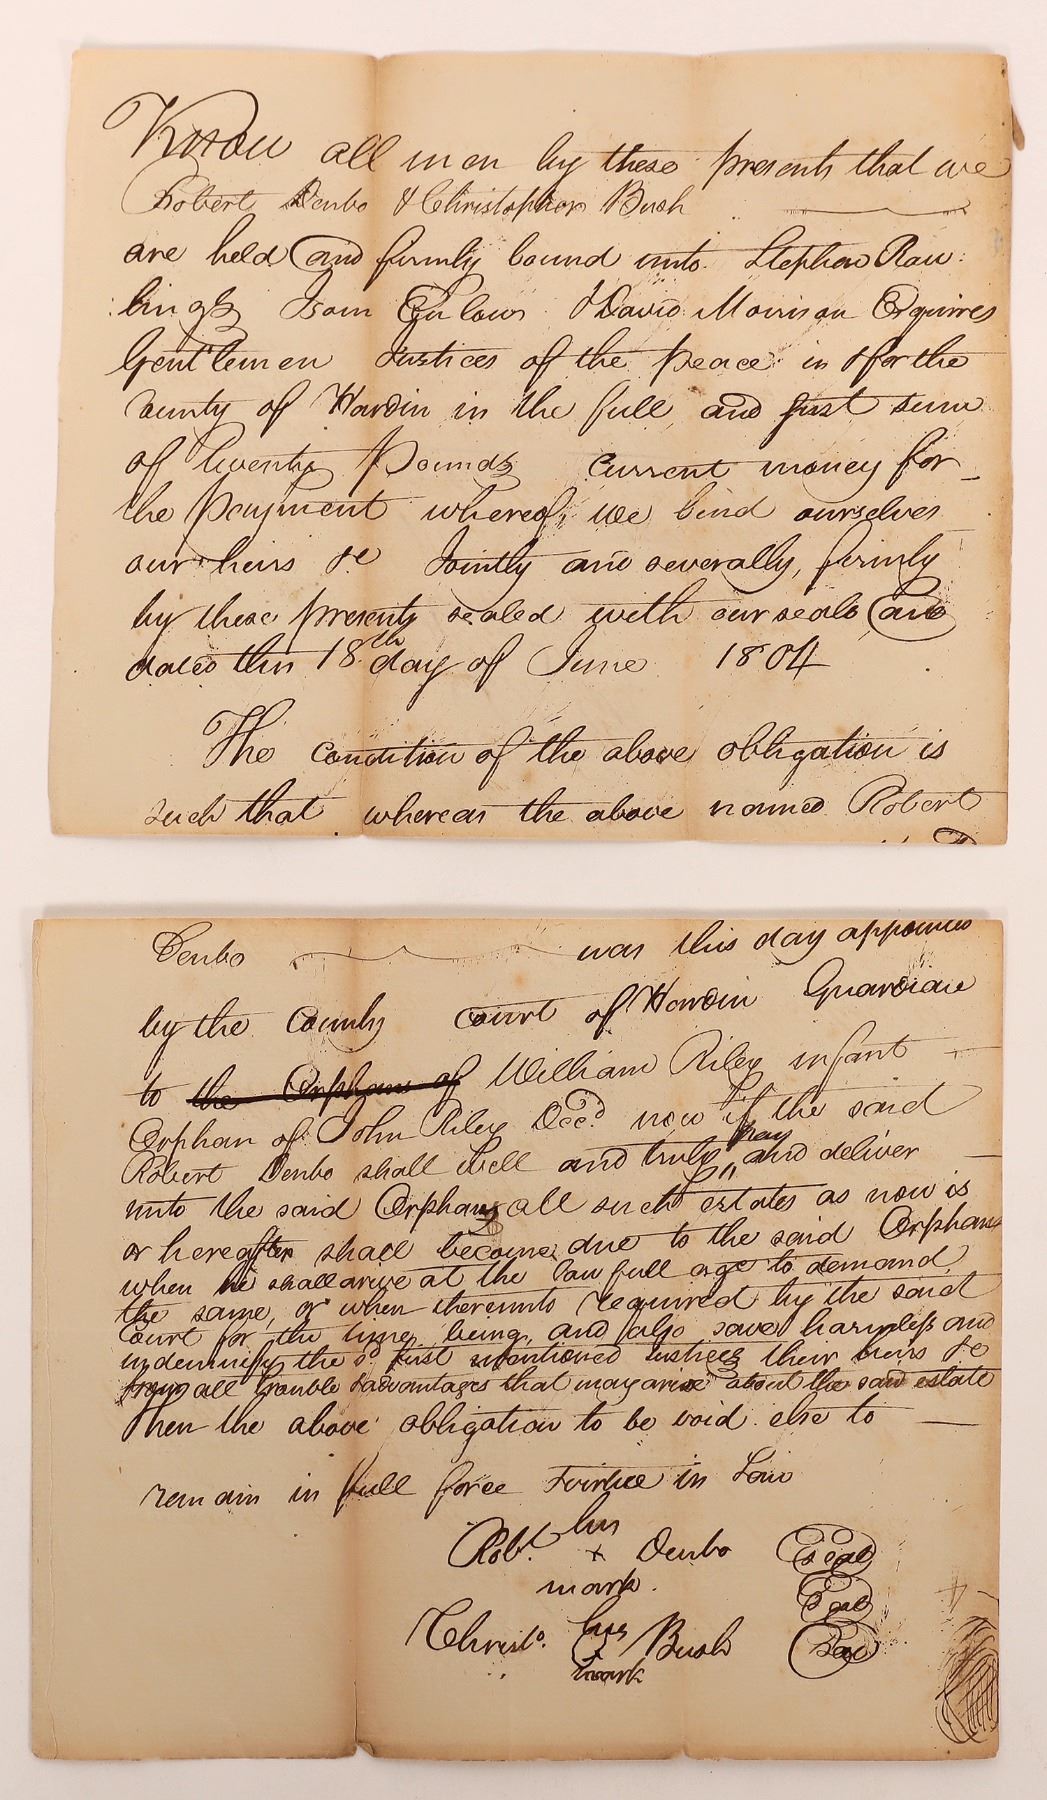 Know all men by these presents that we
Robert Denbo & Christopher Bush
are held and firmly bound unto Stephen Raw:
:lings Isom Enlows & David Morrison Esquires
Gentlemen Justices of the peace in & for the
County of Hardin in the full and just sum
of Twenty Pounds current money for
the payment whereof, we bind ourselves
our heirs &c Jointly and severally, firmly
by these presents sealed with our seals and
dated this 18th day of June 1804
The condition of the above obligation is
such that whereas the above named Robert
Denbo was this day appointed
by the County court of Hardin Guardian
to the Orphans of William Riley infant
Orphan of John Riley Decd. now if the said
Robert Denbo shall well and truly pay and deliver
unto the said Orphans all such estates as now is
or hereafter shall become due to the said Orphans
when he shall arive at the lawfull age to demand
the same, or when thereunto required by the said
Court for the time being, and also save harmless and
indemnify the sd. first mentioned Justices their heirs &c
from all trouble & advantages that may arise about the said estate
Then the above obligation to be void else to
remain in full force & virtue in Law
Robt. his x mark. Denbo Seal
Seal
Christo. his + mark Bush Seal